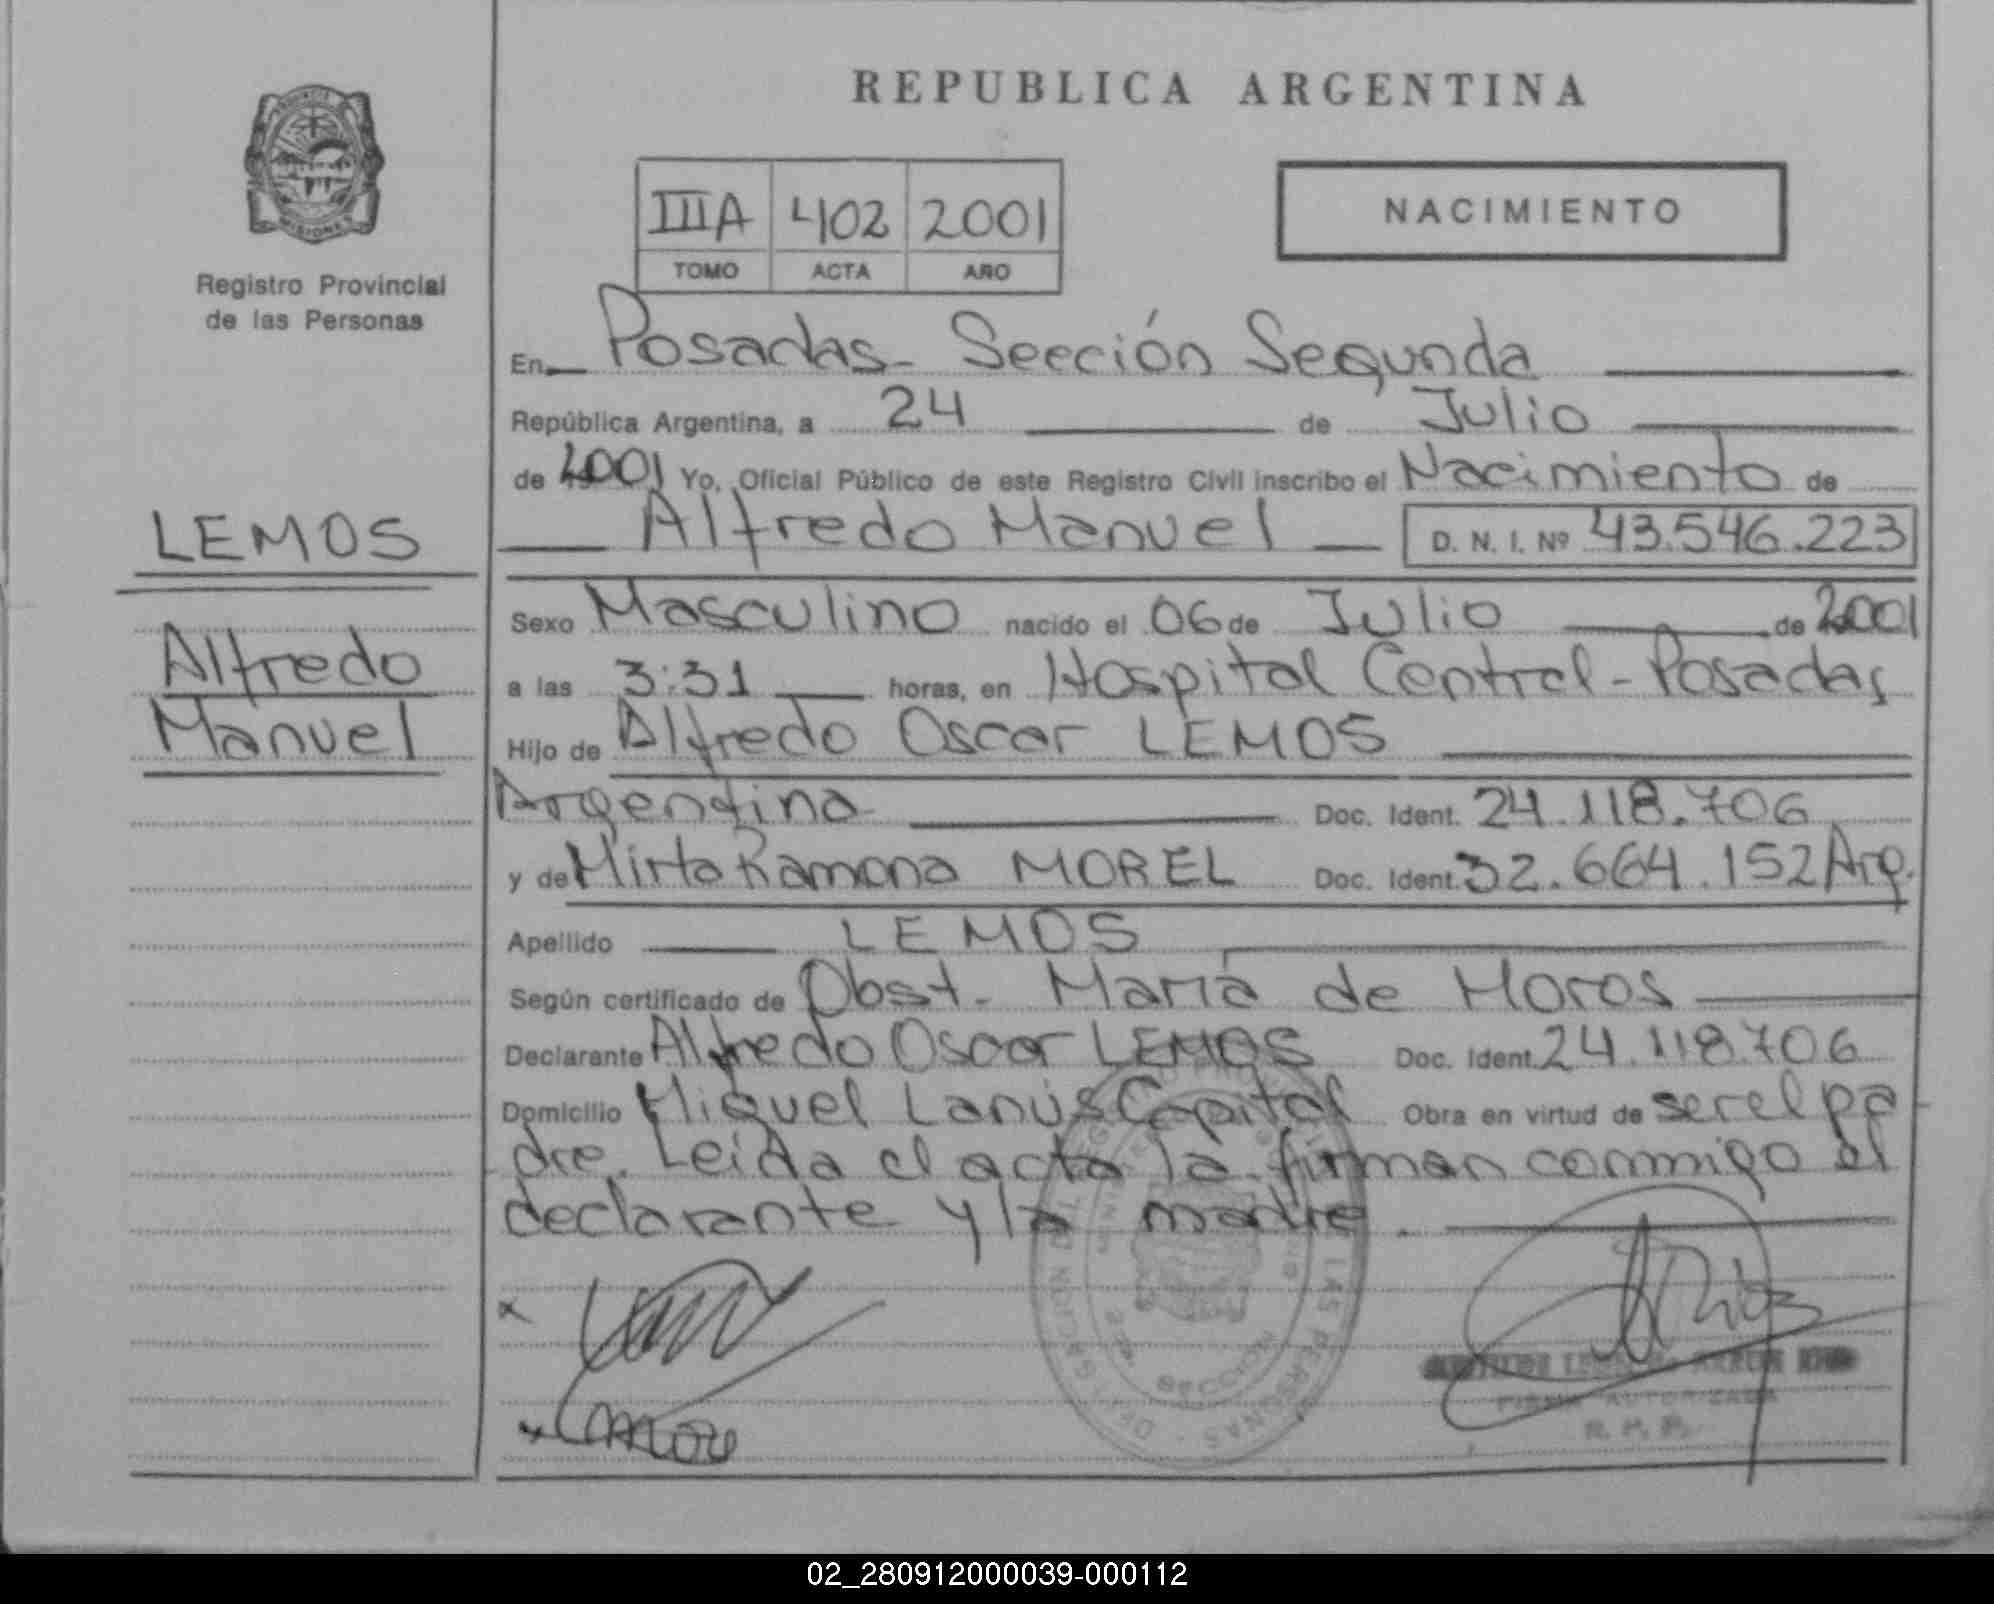 REPUBLICA ARGENTINA
IIIA 402 2001
TOMO ACTA AÑO
NACIMIENTO
Registro Provincial
de las Personas
LEMOS
Alfredo
Manuel
En Posadas - Sección Segunda
República Argentina, a 24 de Julio
de 2001 Yo, Oficial Público de este Registro Civil inscribo el Nacimiento de
Alfredo Manuel D. N. I. Nº 43.546.223
Sexo Masculino nacido el 06 de Julio de 2001
a las 3:31 horas, en Hospital Central - Posadas
Hijo de Alfredo Oscar LEMOS
Argentino Doc. Ident. 24.118.706
y de Mirta Ramona MOREL Doc. Ident. 32.664.152 Arg.
Apellido LEMOS
Según certificado de Obst. María de Moros
Declarante Alfredo Oscar LEMOS Doc. Ident. 24.118.706
Domicilio Miguel Lanús Capital Obra en virtud de ser el pa
dre. Leida el acta la firman conmigo el
declarante y la madre.
LAS PERSONAS
FIRMA AUTORIZADA
02_280912000039-000112